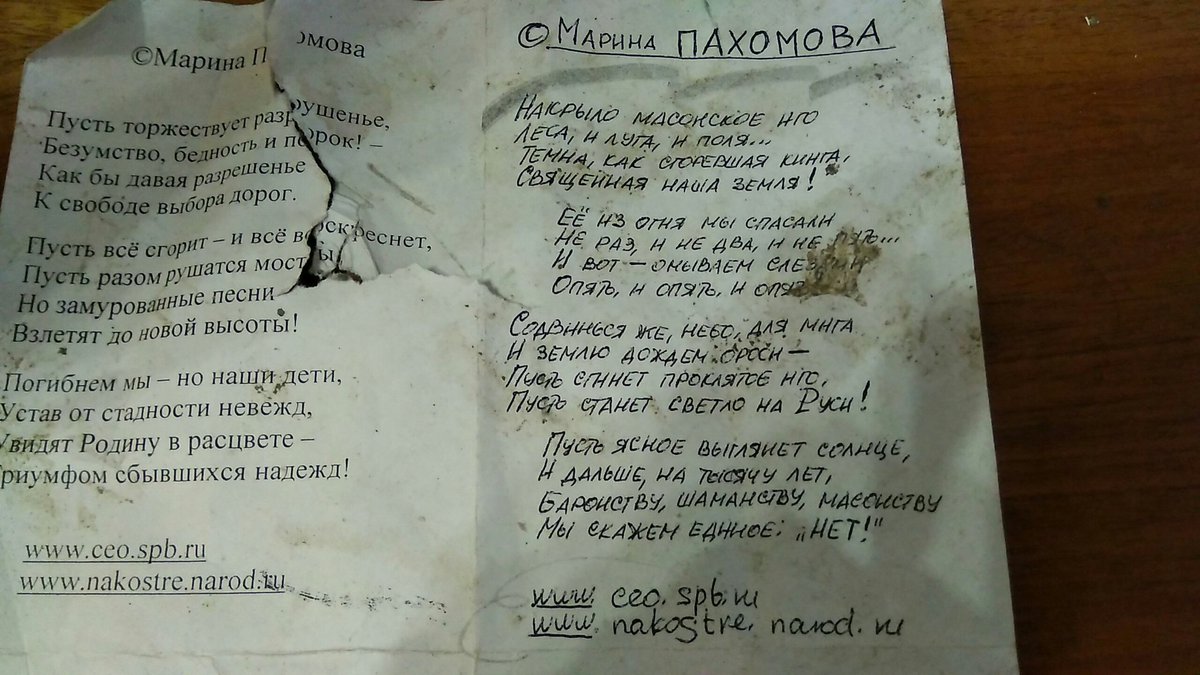 ©Марина Пахомова
Пусть торжествует разрушенье,
Безумство, бедность и порок! –
Как бы давая разрешенье
К свободе выбора дорог.
Пусть всё сгорит – и всё воскреснет,
Пусть разом рушатся мосты,
Но замурованные песни
Взлетят до новой высоты!
Погибнем мы – но наши дети,
Устав от стадности невежд,
Увидят Родину в расцвете –
Триумфом сбывшихся надежд!
www.ceo.spb.ru
www.nakostre.narod.ru
© Марина ПАХОМОВА
Накрыло масонское иго
Леса, и луга, и поля...
Темна, как сгоревшая книга,
Священная наша земля!
Её из огня мы спасали
Не раз, и не два, и не пять...
И вот – омываем слезами
Опять, и опять, и опять
Содвинься же, небо, для мига
И землю дождем ороси –
Пусть сгинет проклятое иго,
Пусть станет светло на Руси!
Пусть ясное выглянет солнце,
И дальше, на тысячу лет,
Баронству, шаманству, масонству
Мы скажем единое: „НЕТ!"
www. ceo. spb. ru
www. nakostre. narod. ru